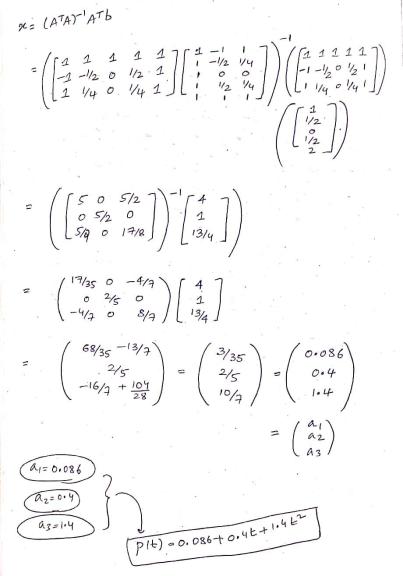 x = (AᵀA)⁻¹Aᵀb
= ([1 1 1 1 1; -1 -1/2 0 1/2 1; 1 1/4 0 1/4 1][1 -1 1; 1 -1/2 1/4; 1 0 0; 1 1/2 1/4; 1 1 1])⁻¹([1 1 1 1 1; -1 -1/2 0 1/2 1; 1 1/4 0 1/4 1])
([1; 1/2; 0; 1/2; 2])
= ([5 0 5/2; 0 5/2 0; 5/2 0 17/8])⁻¹[4; 1; 13/4])
= (17/35 0 -4/7; 0 2/5 0; -4/7 0 8/7)[4; 1; 13/4]
= (68/35 - 13/7; 2/5; -16/7 + 104/28) = (3/35; 2/5; 10/7) = (0.086; 0.4; 1.4)
= (a₁; a₂; a₃)
a₁=0.086
a₂=0.4
a₃=1.4
P(t) = 0.086+0.4t+1.4t²